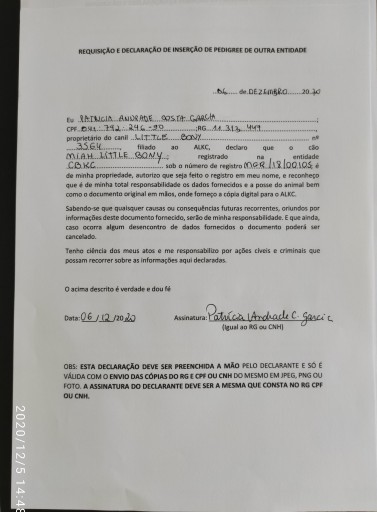 REQUISIÇÃO E DECLARAÇÃO DE INSERÇÃO DE PEDIGREE DE OUTRA ENTIDADE
06 de DEZEMBRO 2020
Eu PATRICIA ANDRADE COSTA GARCIA;
CPF 041.792.246-90 ;RG 11 313 449,
proprietário do canil LITTLE BONY nº
3564, filiado ao ALKC, declaro que o cão
MIAH LITTLE BONY, registrado na entidade
CBKC sob o número de registro MGR/18/00105 é
de minha propriedade, autorizo que seja feito o registro em meu nome, e reconheço
que é de minha total responsabilidade os dados fornecidos e a posse do animal bem
como o documental original em mãos, onde forneço a cópia digital para o ALKC.
Sabendo-se que quaisquer causas ou consequências futuras recorrentes, oriundos por
informações deste documento fornecido, serão de minha responsabilidade. E que ainda,
caso ocorra algum desencontro de dados fornecidos o documento poderá ser
cancelado.
Tenho ciência dos meus atos e me responsabilizo por ações cíveis e criminais que
possam recorrer sobre as informações aqui declaradas.
O acima descrito é verdade e dou fé
Data: 06/12/2020 Assinatura: Patrícia Andrade C. Garcia
(Igual ao RG ou CNH)
OBS: ESTA DECLARAÇÃO DEVE SER PREENCHIDA A MÃO PELO DECLARANTE E SÓ É
VÁLIDA COM O ENVIO DAS CÓPIAS DO RG E CPF OU CNH DO MESMO EM JPEG, PNG OU
FOTO. A ASSINATURA DO DECLARANTE DEVE SER A MESMA QUE CONSTA NO RG CPF
OU CNH.
2020/12/5 14:48